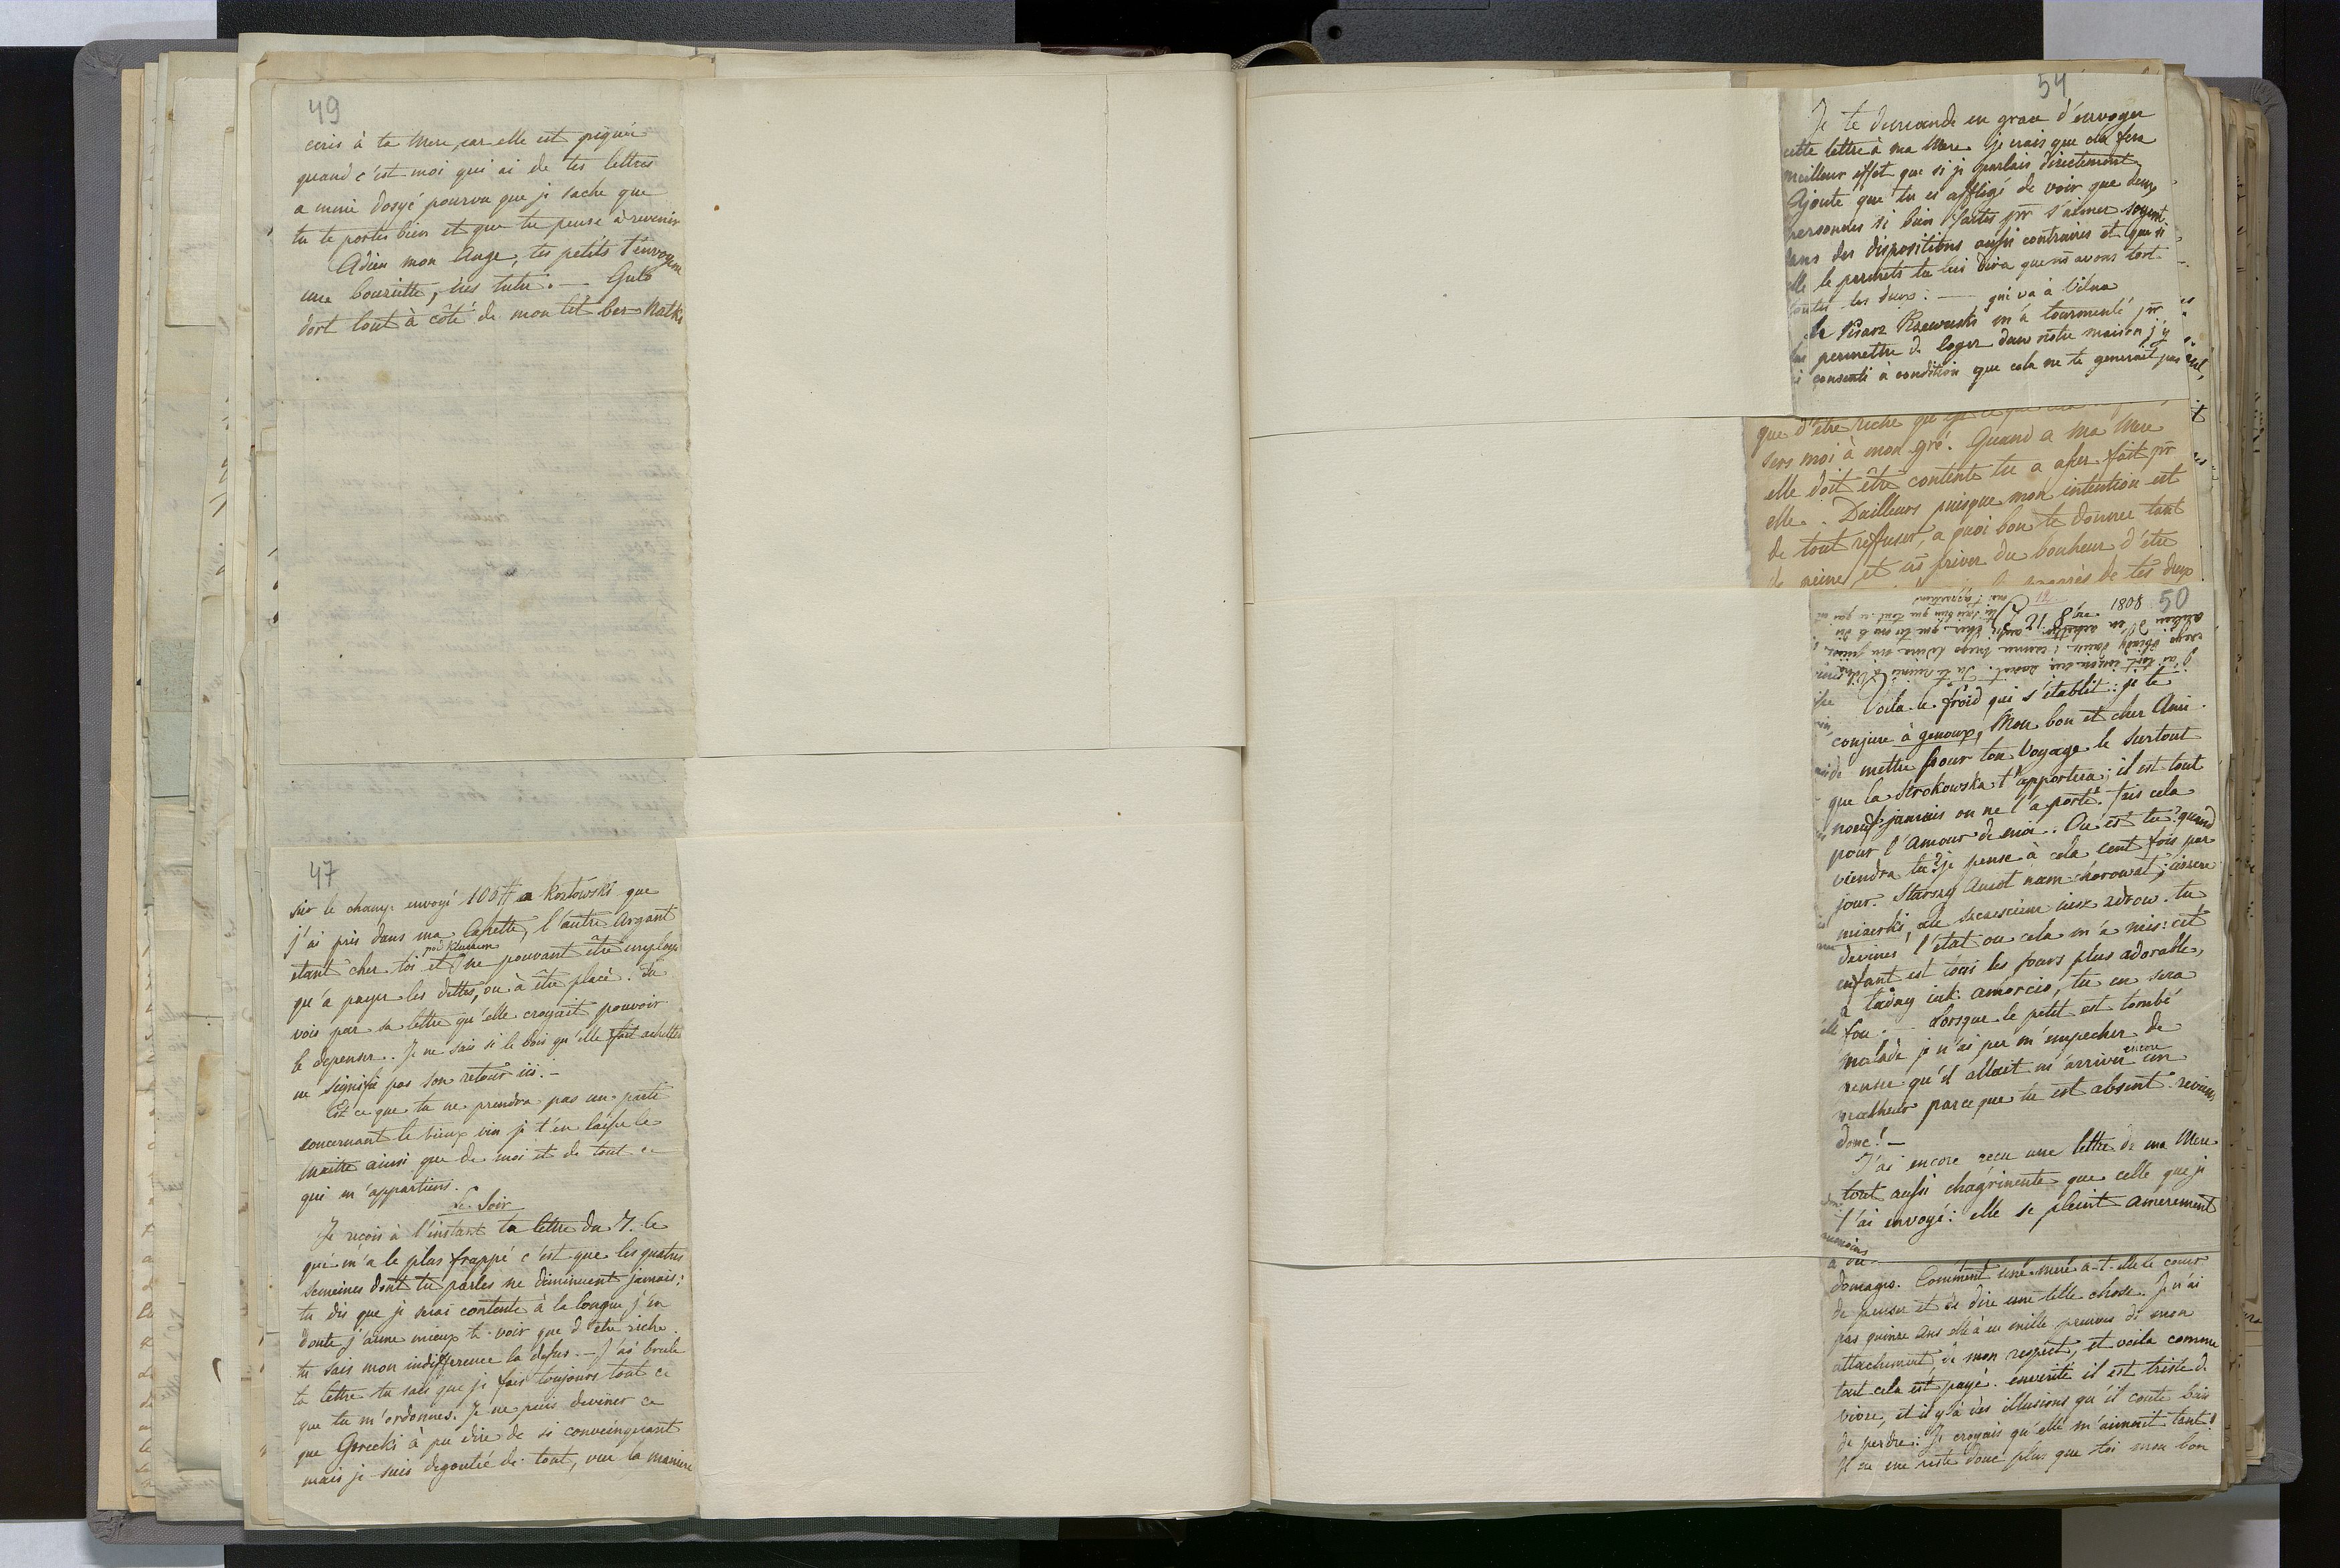 49
ecris à ta Mere, car elle est piquée
quand c'est moi qui ai de tes lettres
a mnie dosyć pourvu que je sache que
tu te portes bien et que tu pense à revenir
Adieu mon Ange, tes petits t'envoyent
une
dort tout à côté de mon lit bez Matki
47
sur le champ envoyé 100# a Kozłowski que
j'ai pris dans ma Casette, l'autre argent
pod kluczem
etant cher toi et ne pouvant être employé
qu'a payer les dettes, ou à être placé. Tu
vois par sa lettre qu'elle croyait pouvoir
le depenser. Je ne sais si le bois qu'elle fait acheter
ne signifie pas son retour ici. —
Est ce que tu ne prendra pas un parti
concernant le vieux vin je t'en laisse le
Maitre ainsi que de moi et de tout ce
qui m'appartiens.
Le Soir
Je reçois à l'instant ta lettre du 7. Ce
qui m'a le plus frappé c'est que les quatres
semaines dont tu parles ne diminuent jamais:
tu dis que je serai contente à la longue j'en
doute j'aime mieux te voir que d'etre riche.
tu sais mon indifference la dessus. — J'ai brulé
ta lettre tu sais que je fais toujours tout ce
que tu m'ordonnes. Je ne puis deviner ce
que Gorecki à pu dire de si convainquant
mais je suis degoutée de tout, vue la maniere
54
Je te demande en grace d'envoyer
cette lettre à ma Mere je crois que cela fera
meilleur effet que si je parlais directement.
Ajoute que tu es affligé de voir que deux
personnes si bien faites pr s'aimer soyent
dans des dispositions aussi contraires et que si
elle le permets tu lui dira que ns avons tort
toutes les deux: —
qui va à Vilna
Le Pisarz Rzewuski m'a tourmenté pr
lui permettre de loger dans notre maison j'y
ai consenti à condition que cela ne te generait pas
que d'etre riche
sers moi à mon gré. Quand a Ma Mere
elle doit être contente tu a assez fait pr
elle. D'ailleurs puisque mon intention est
de tout refuser, a quoi bon te donner tant
de peine et ns priver du bonheur d'etre
de tes deux
50
12 8bre 1808
Voila le froid qui s'établit: je te
conjure à genoux, Mon bon et cher Ami
de mettre pour ton Voyage le surtout
que la Strokowska t'apportera; il est tout
noeuf jamais on ne l'a porté. fais cela
pour l'Amour de moi. Ou est tu? quand
viendra tu? je pense à cela cent fois par
jour. Starszy Aniot nam chorował,
mizerski, ale szczesciem iuz zdrow. tu
devines l'etat ou cela m'a mis: cet
enfant est tous les jours plus adorable,
a ładny iak amorcio, tu en sera
fou. — Lorsque le petit est tombé
malade je n'ai pu m'empecher de
penser qu'il allait m'arriver encore un
malheur parceque tu est absent. reviens
donc! —
J'ai encore reçu une lettre de ma Mere
tout aussi chagrinente que celle que je
t'ai envoyé: elle se plaint amerement
Comment une mere a-t-elle le coeur
de penser et de dire une telle chose. Je n'ai
pas quinze ans elle à eu mille preuves de mon
attachement, de mon respect, et voila comme
tout cela est payé. en verité il est triste de
vivre, et il y à des illusions qu'il coute bien
de perdre: Je croyais qu'elle m'aimait tant!
Il ne me reste donc plus que toi mon bon